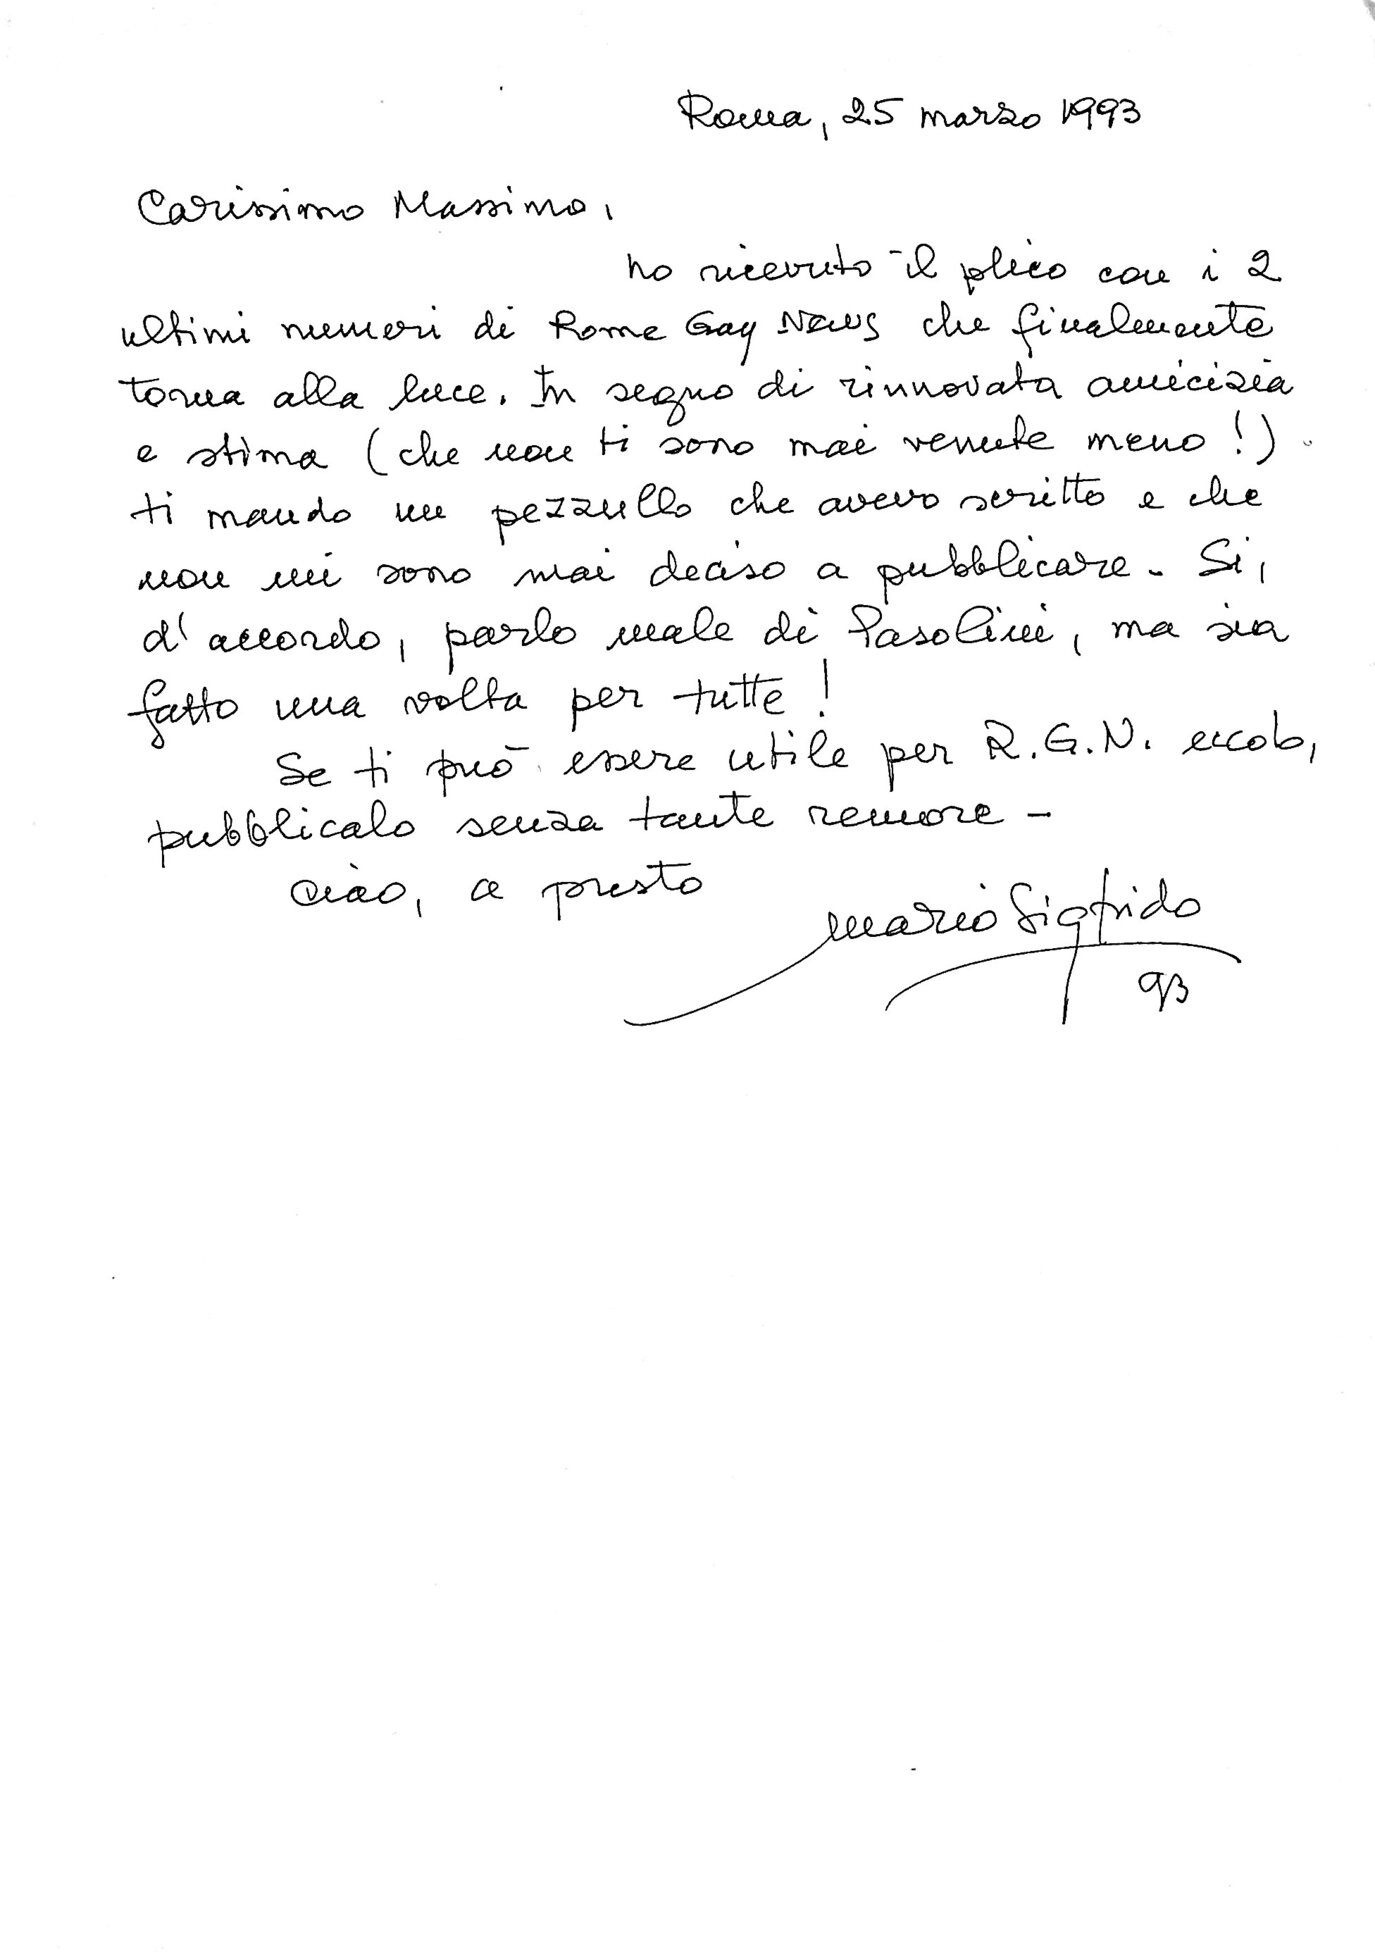 Roma, 25 marzo 1993
Carissimo Massimo,
ho ricevuto il plico con i 2
ultimi numeri di Rome Gay News che finalmente
torna alla luce. In segno di rinnovata amicizia
e stima (che non ti sono mai venute meno!)
ti mando un pezzullo che avevo scritto e che
non mi sono mai deciso a pubblicare. Si,
d'accordo, parlo male di Pasolini, ma sia
fatto una volta per tutte!
Se ti può essere utile per R.G.N. eccolo,
pubblicalo senza tante remore -
Ciao, a presto
Mario Sigfrido
93